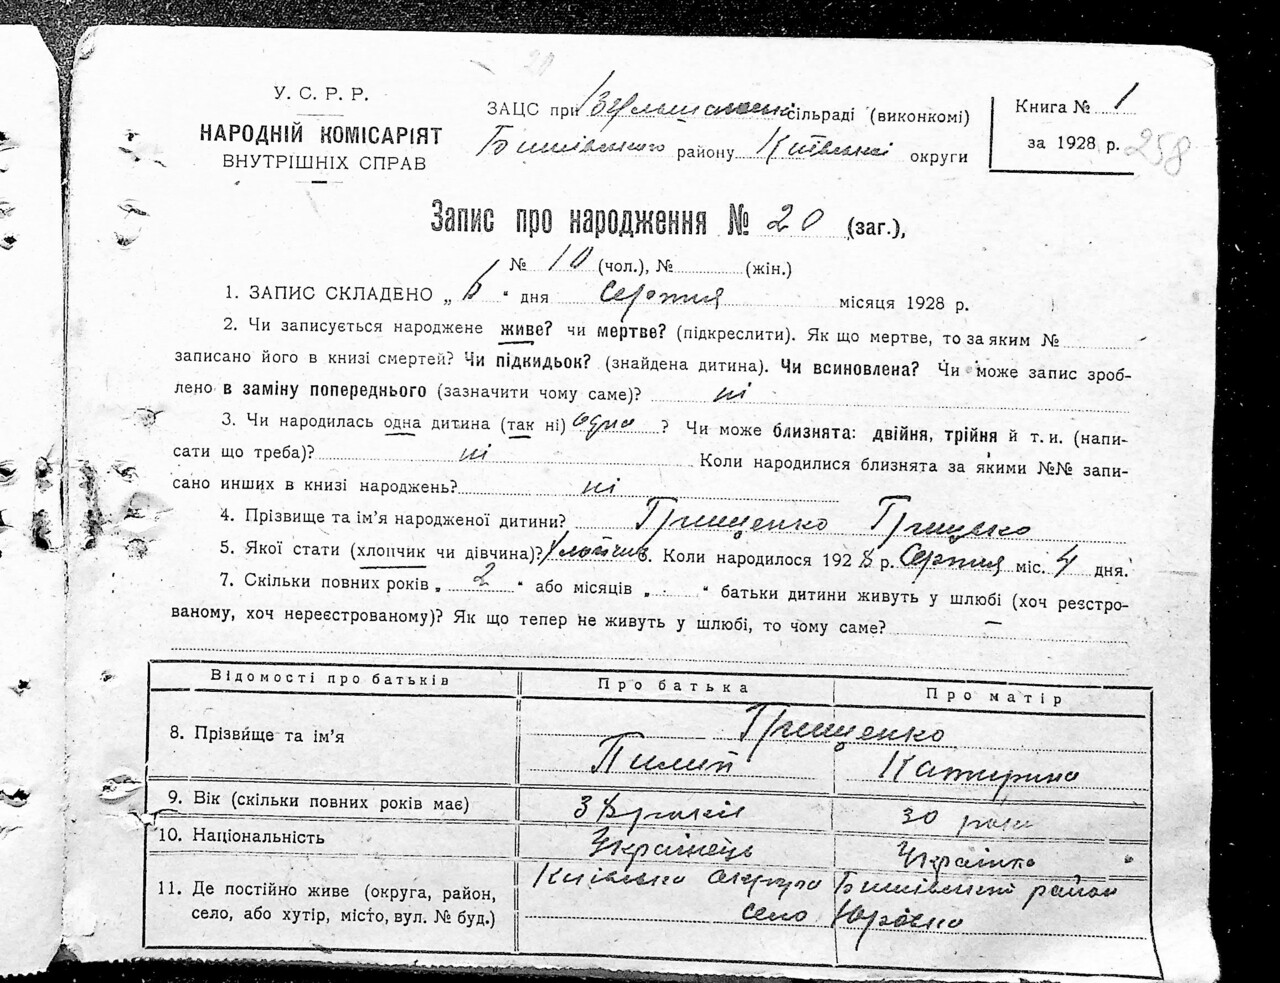 У. С. Р. Р.
НАРОДНІЙ КОМІСАРІЯТ
ВНУТРІШНІХ СПРАВ
ЗАЦС при сільраді (виконкомі)
Бишівського району Київської округи
Книга № 1
за 1928 р.
258
Запис про народження № 20 (заг.),
№ 10 (чол.), № (жін.)
1. ЗАПИС СКЛАДЕНО „ 6 “ дня Серпня місяця 1928 р.
2. Чи записується народжене живе? чи мертве? (підкреслити). Як що мертве, то за яким №
записано його в книзі смертей? Чи підкидьок? (знайдена дитина). Чи всиновлена? Чи може запис зроб-
лено в заміну попереднього (зазначити чому саме)? ні
3. Чи народилась одна дитина (так ні) одна ? Чи може близнята: двійня, трійня й т. и. (напи-
сати що треба)? ні Коли народилися близнята за якими №№ запи-
сано инших в книзі народжень? ні
4. Прізвище та ім’я народженої дитини? Грищенко Грицько
5. Якої стати (хлопчик чи дівчина)? Хлопчик 6. Коли народилося 1928 р. Серпня міс. 4 дня.
7. Скільки повних років „ 2 “ або місяців „ “ батьки дитини живуть у шлюбі (хоч реєстро-
ваному, хоч нереєстрованому)? Як що тепер не живуть у шлюбі, то чому саме? —
Відомості про батьків Про батька Про матір
8. Прізвище та ім’я Грищенко
Пилип Катерина
9. Вік (скільки повних років має) 38 років 30 років
10. Національність Українець Українка
11. Де постійно живе (округа, район, Київська округа Бишівський район
село, або хутір, місто, вул. № буд.) село Юрівка